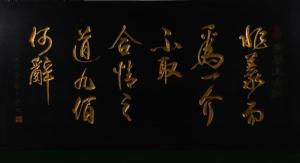 非義而
為一介
不取
合情之
道九佰
何辭